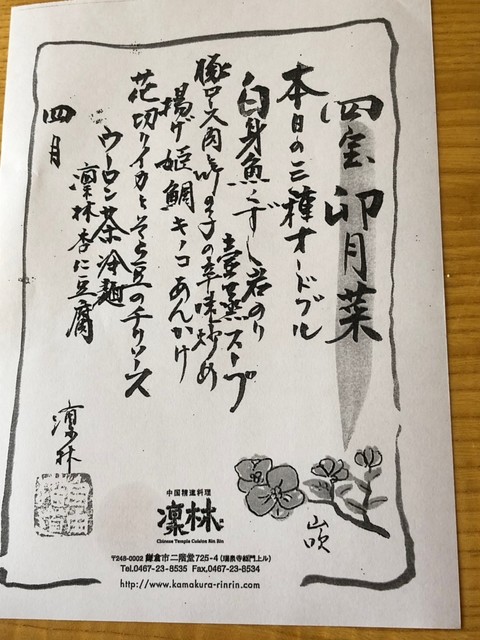 四宝 卯月菜
本日の三種オードブル
白身魚くずし岩のり
壺蒸スープ
豚ロース肉 竹の子の辛味炒め
揚げ姫鯛 キノコ あんかけ
花切りイカとそら豆のチリソース
ウーロン茶冷麺
凛林杏仁豆腐
四月
凛林
山吹
中国精進料理
凛林
Chinese Temple Cuisine Rin Rin
〒248-0002 鎌倉市二階堂725-4 (瑞泉寺総門上ル)
Tel.0467-23-8535 Fax.0467-23-8534
http://www.kamakura-rinrin.com/